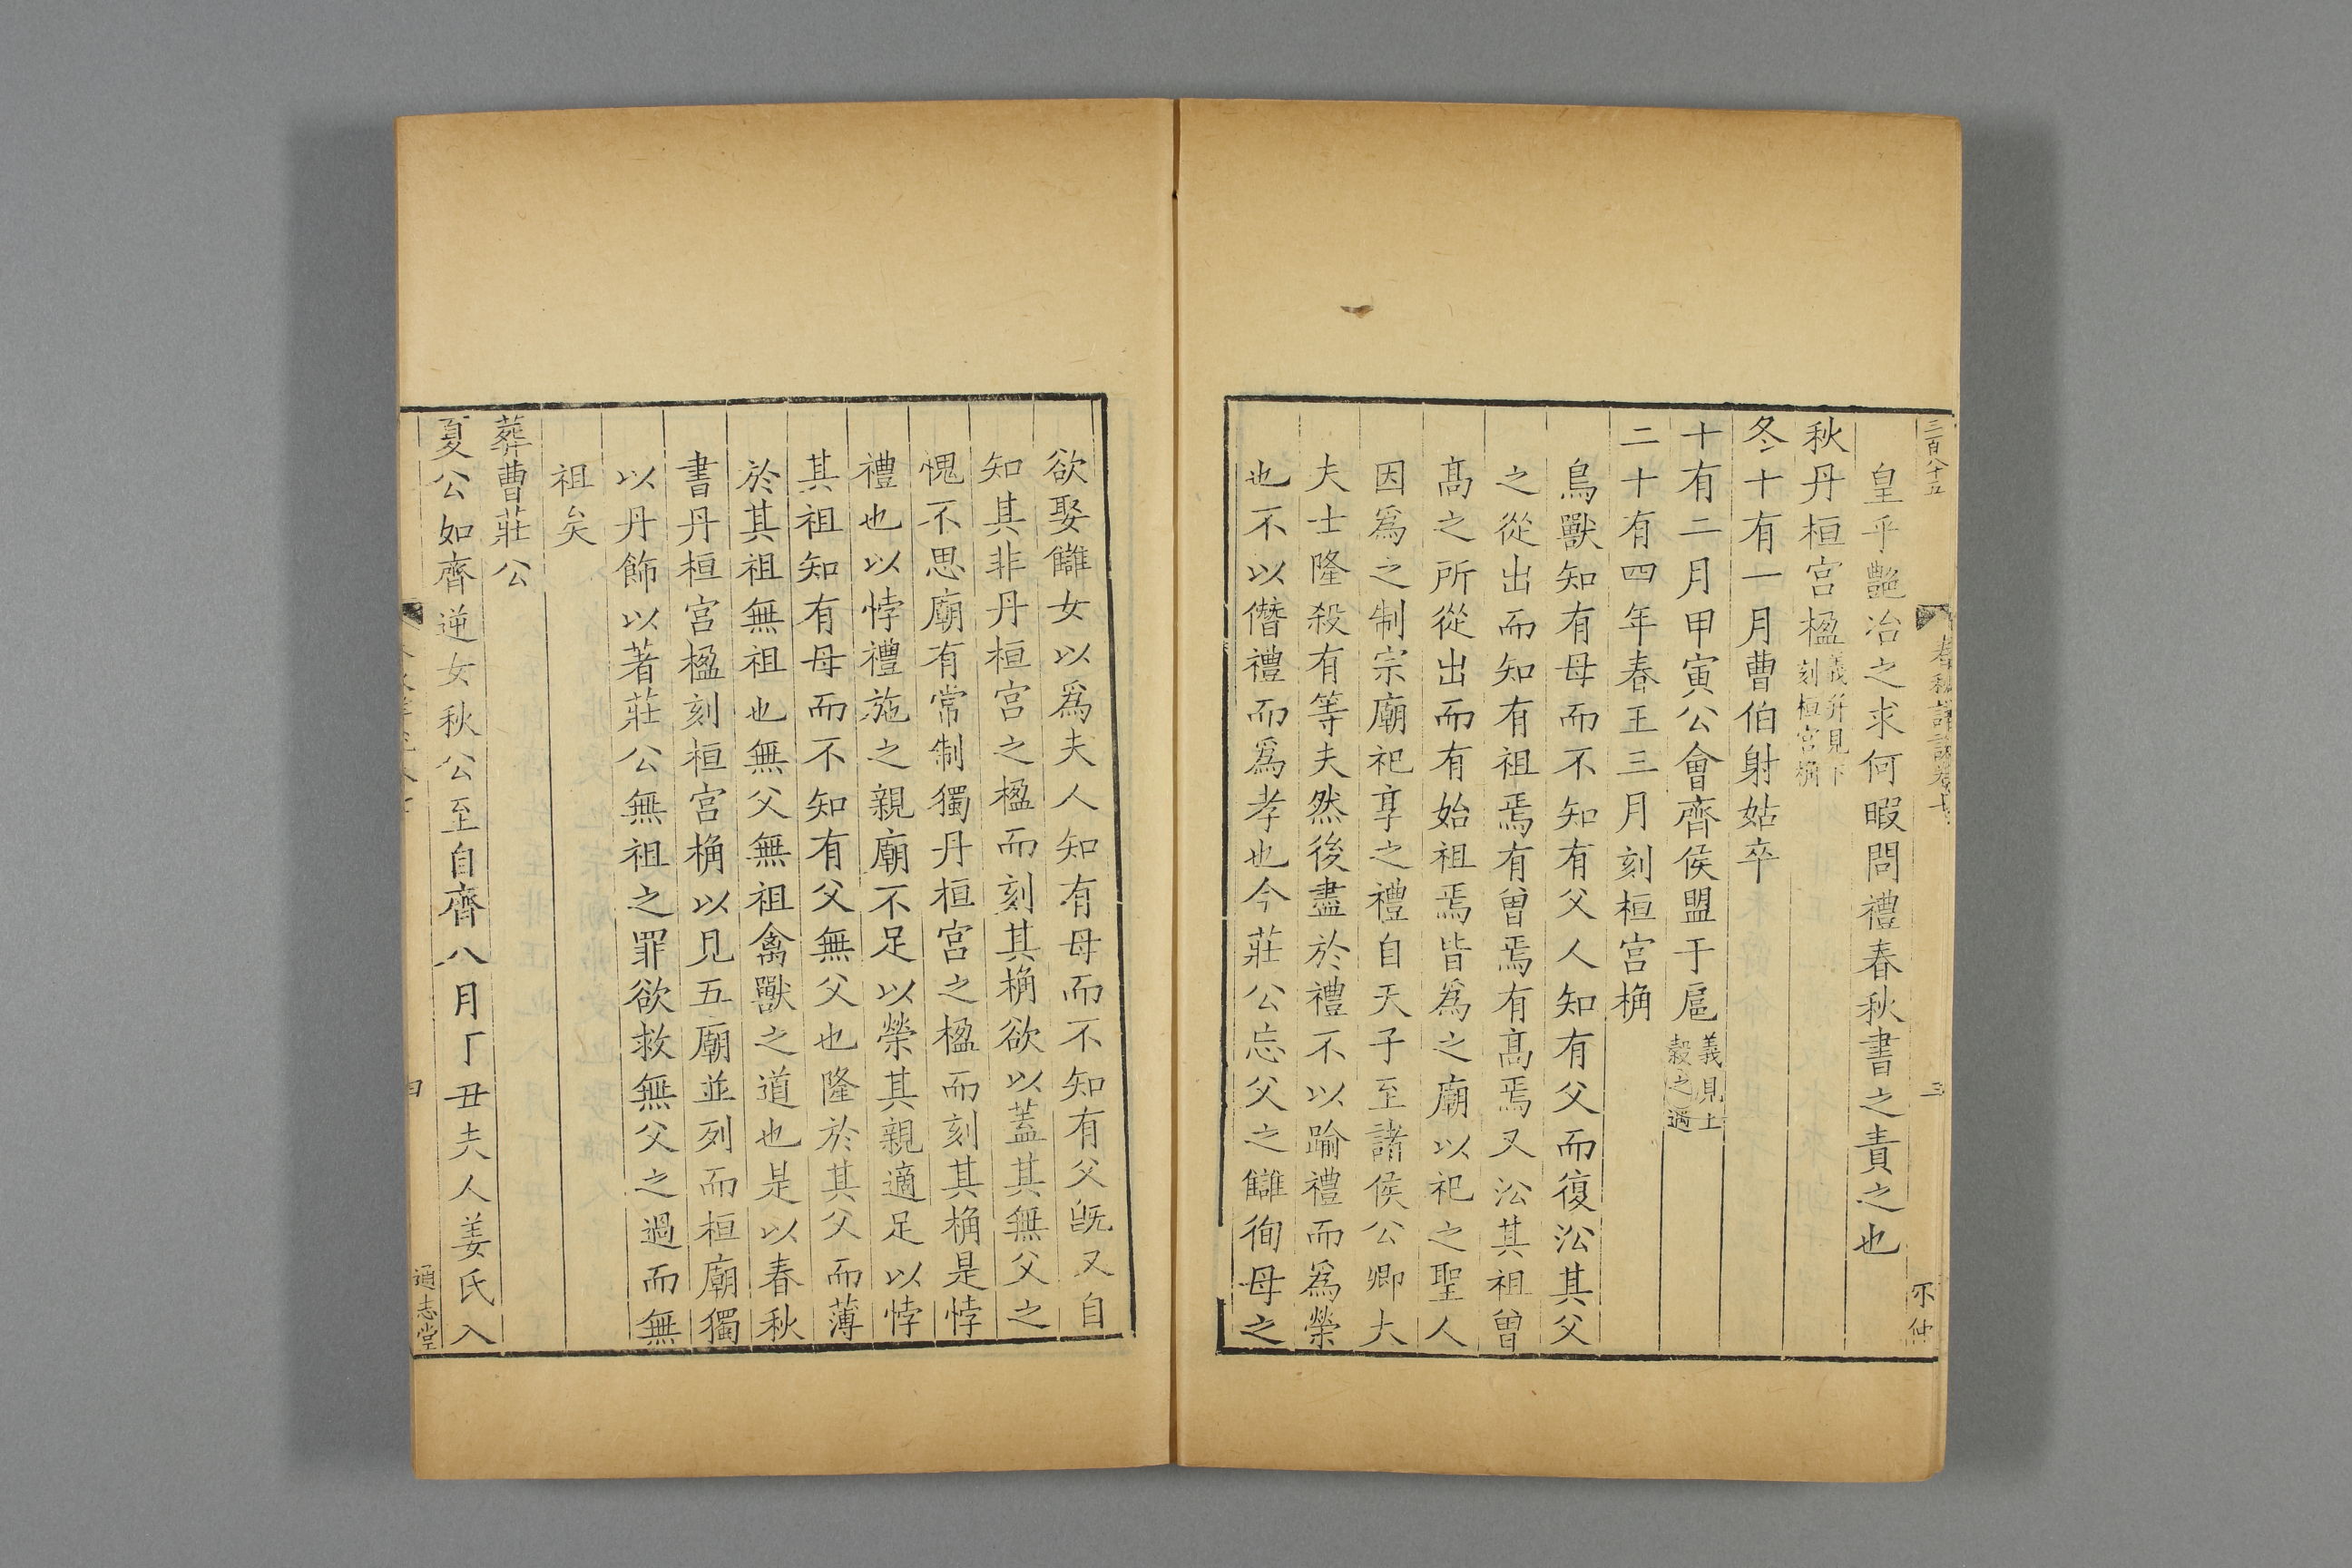 三百八十五
三
不仲
皇乎艷冶之求何暇問禮春秋書之責之也
秋丹桓宮楹義并見下刻桓宮桷
冬十有一月曹伯射姑卒
十有二月甲寅公會齊侯盟于扈義見上穀之遇
二十有四年春王三月刻桓宮桷
鳥獸知有母而不知有父人知有父而復㳂其父
之從出而知有祖焉有曾焉有髙焉又㳂其祖曾
髙之所從出而有始祖焉皆爲之廟以祀之聖人
因爲之制宗廟祀享之禮自天子至諸侯公卿大
夫士隆殺有等夫然後盡於禮不以踰禮而爲榮
也不以僭禮而爲孝也今莊公忘父之讎徇母之
欲娶讎女以爲夫人知有母而不知有父旣又自
知其非丹桓宮之楹而刻其桷欲以蓋其無父之
愧不思廟有常制獨丹桓宮之楹而刻其桷是悖
禮也以悖禮施之親廟不足以榮其親適足以悖
其祖知有母而不知有父無父也隆於其父而薄
於其祖無祖也無父無祖禽獸之道也是以春秋
書丹桓宮楹刻桓宮桷以見五廟並列而桓廟獨
以丹飾以著莊公無祖之罪欲救無父之過而無
祖矣
葬曹莊公
夏公如齊逆女秋公至自齊八月丁丑夫人姜氏入
通志堂